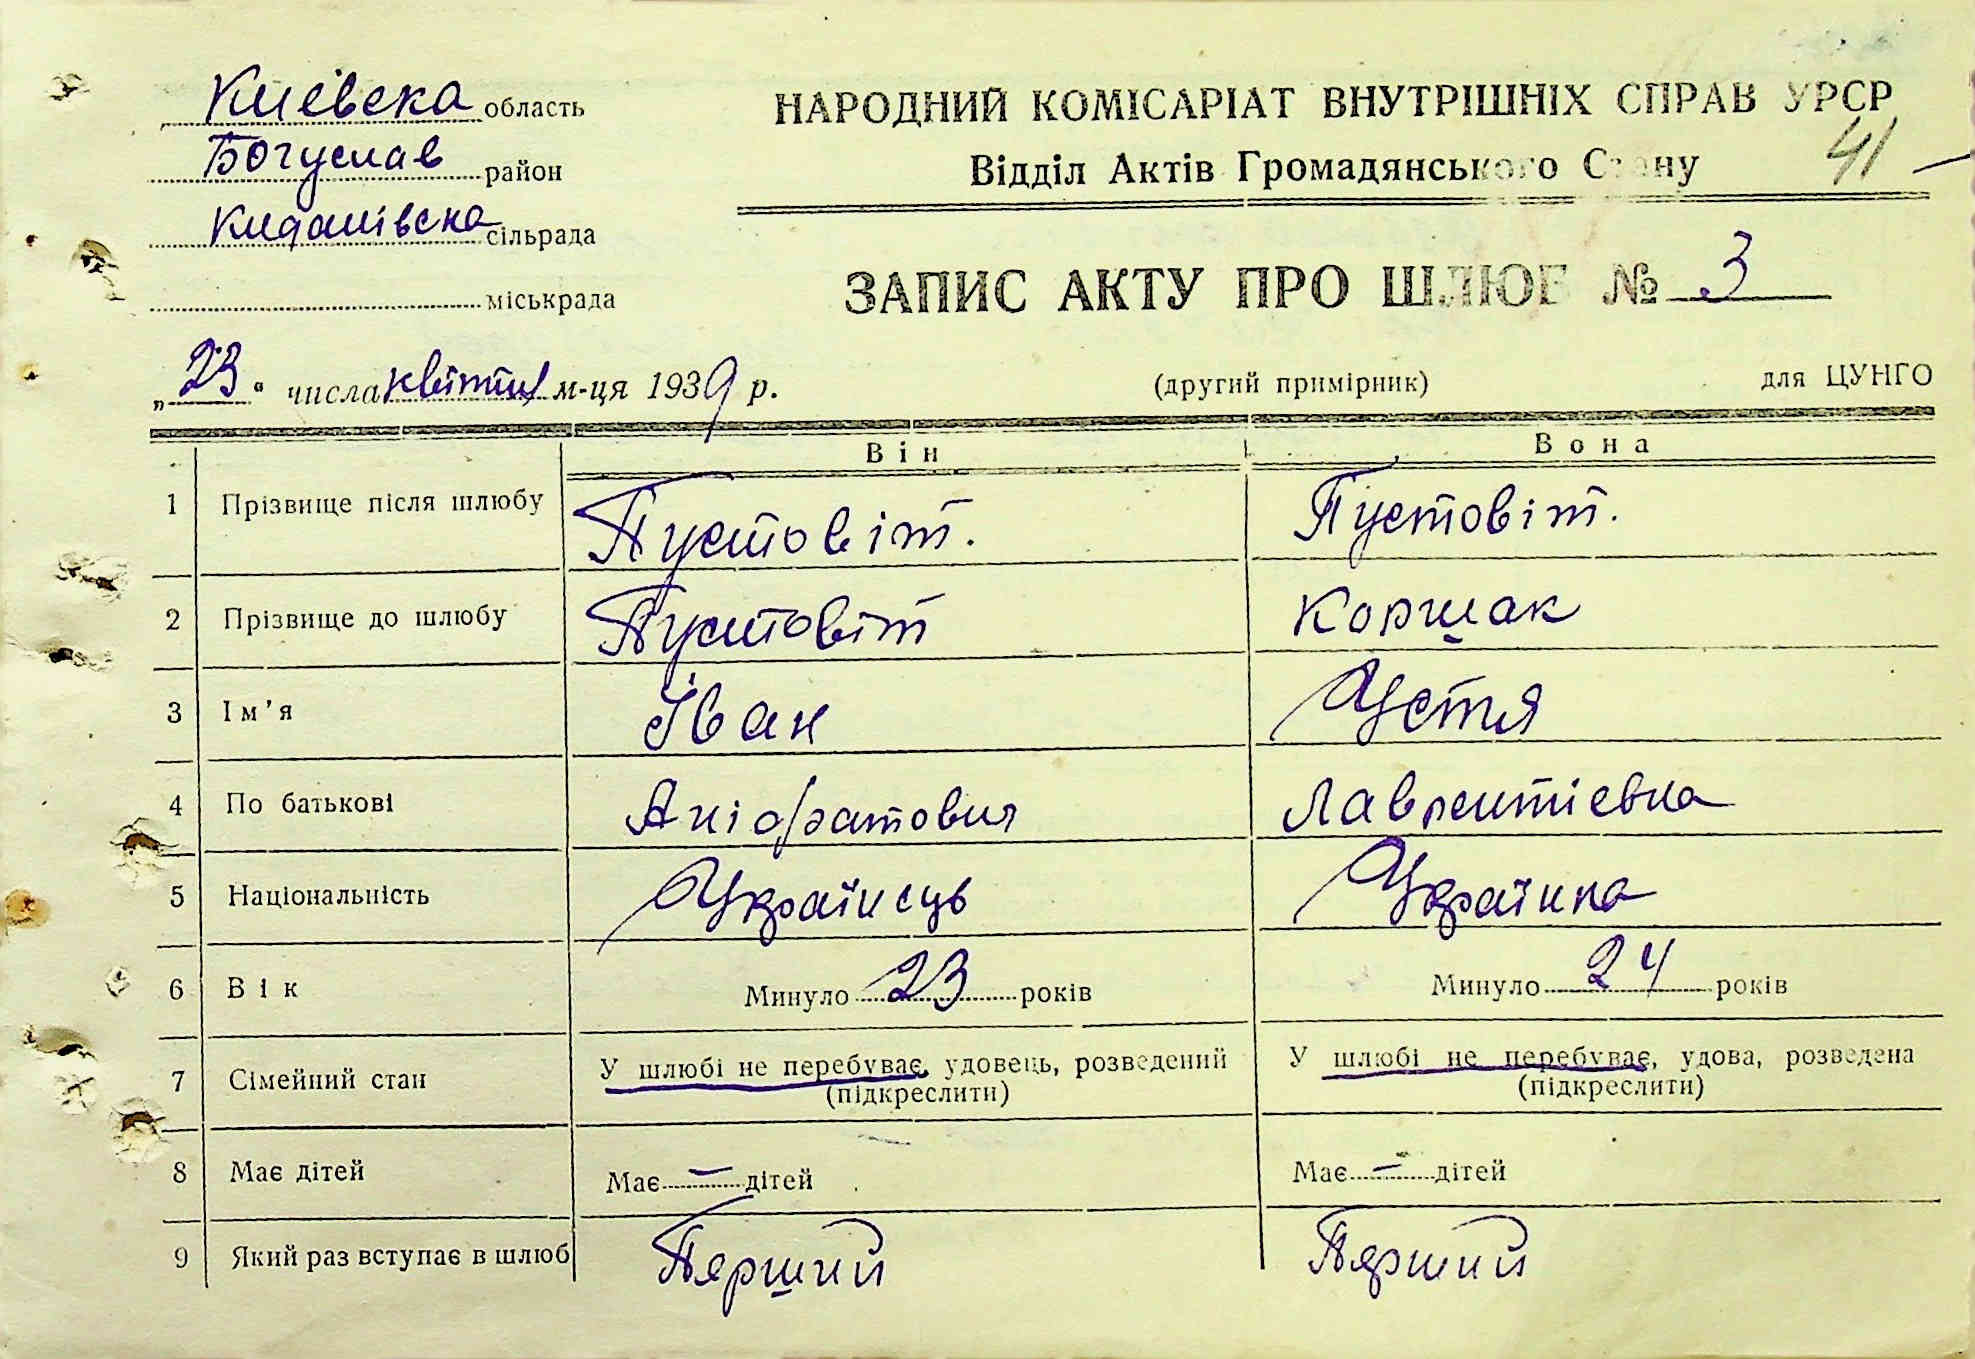 Киевска область
Богуслав район
Кидашівска сільрада
міськрада
НАРОДНИЙ КОМІСАРІАТ ВНУТРІШНІХ СПРАВ УРСР
41
Відділ Актів Громадянського Стану
ЗАПИС АКТУ ПРО ШЛЮБ № 3
„23“ числа квітня м-ця 1939 р.
(другий примірник)
для ЦУНГО
Він
Вона
1 Прізвище після шлюбу Пустовіт. Пустовіт.
2 Прізвище до шлюбу Пустовіт Коршак
3 Ім’я Іван Устя
4 По батькові Лаврентіевна
5 Національність Українець Українка
6 Вік Минуло 23 років Минуло 24 років
7 Сімейний стан У шлюбі не перебуває, удовець, розведений У шлюбі не перебуває, удова, розведена
(підкреслити) (підкреслити)
8 Має дітей Має — дітей Має — дітей
9 Який раз вступає в шлюб Перший Перший